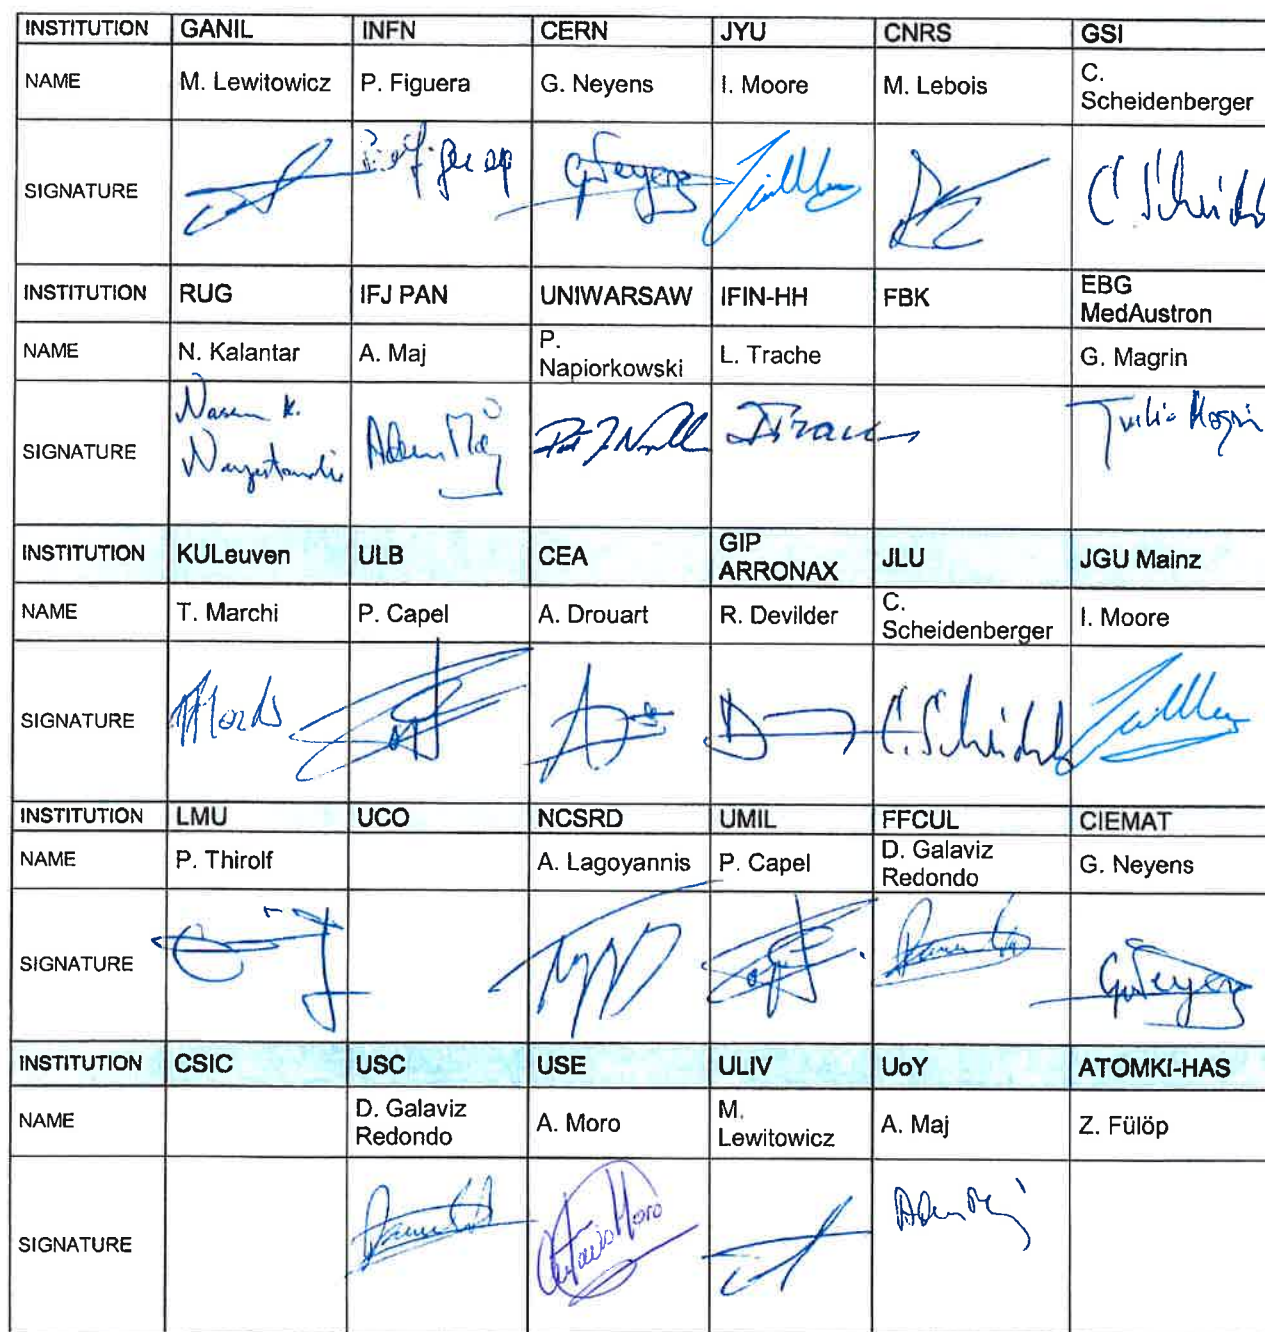 INSTITUTION GANIL INFN CERN JYU CNRS GSI
NAME M. Lewitowicz P. Figuera G. Neyens I. Moore M. Lebois C. Scheidenberger
SIGNATURE
INSTITUTION RUG IFJ PAN UNIWARSAW IFIN-HH FBK EBG MedAustron
NAME N. Kalantar A. Maj P. Napiorkowski L. Trache G. Magrin
SIGNATURE
INSTITUTION KULeuven ULB CEA GIP ARRONAX JLU JGU Mainz
NAME T. Marchi P. Capel A. Drouart R. Devilder C. Scheidenberger I. Moore
SIGNATURE
INSTITUTION LMU UCO NCSRD UMIL FFCUL CIEMAT
NAME P. Thirolf A. Lagoyannis P. Capel D. Galaviz Redondo G. Neyens
SIGNATURE
INSTITUTION CSIC USC USE ULIV UoY ATOMKI-HAS
NAME D. Galaviz Redondo A. Moro M. Lewitowicz A. Maj Z. Fülöp
SIGNATURE Antonio Moro